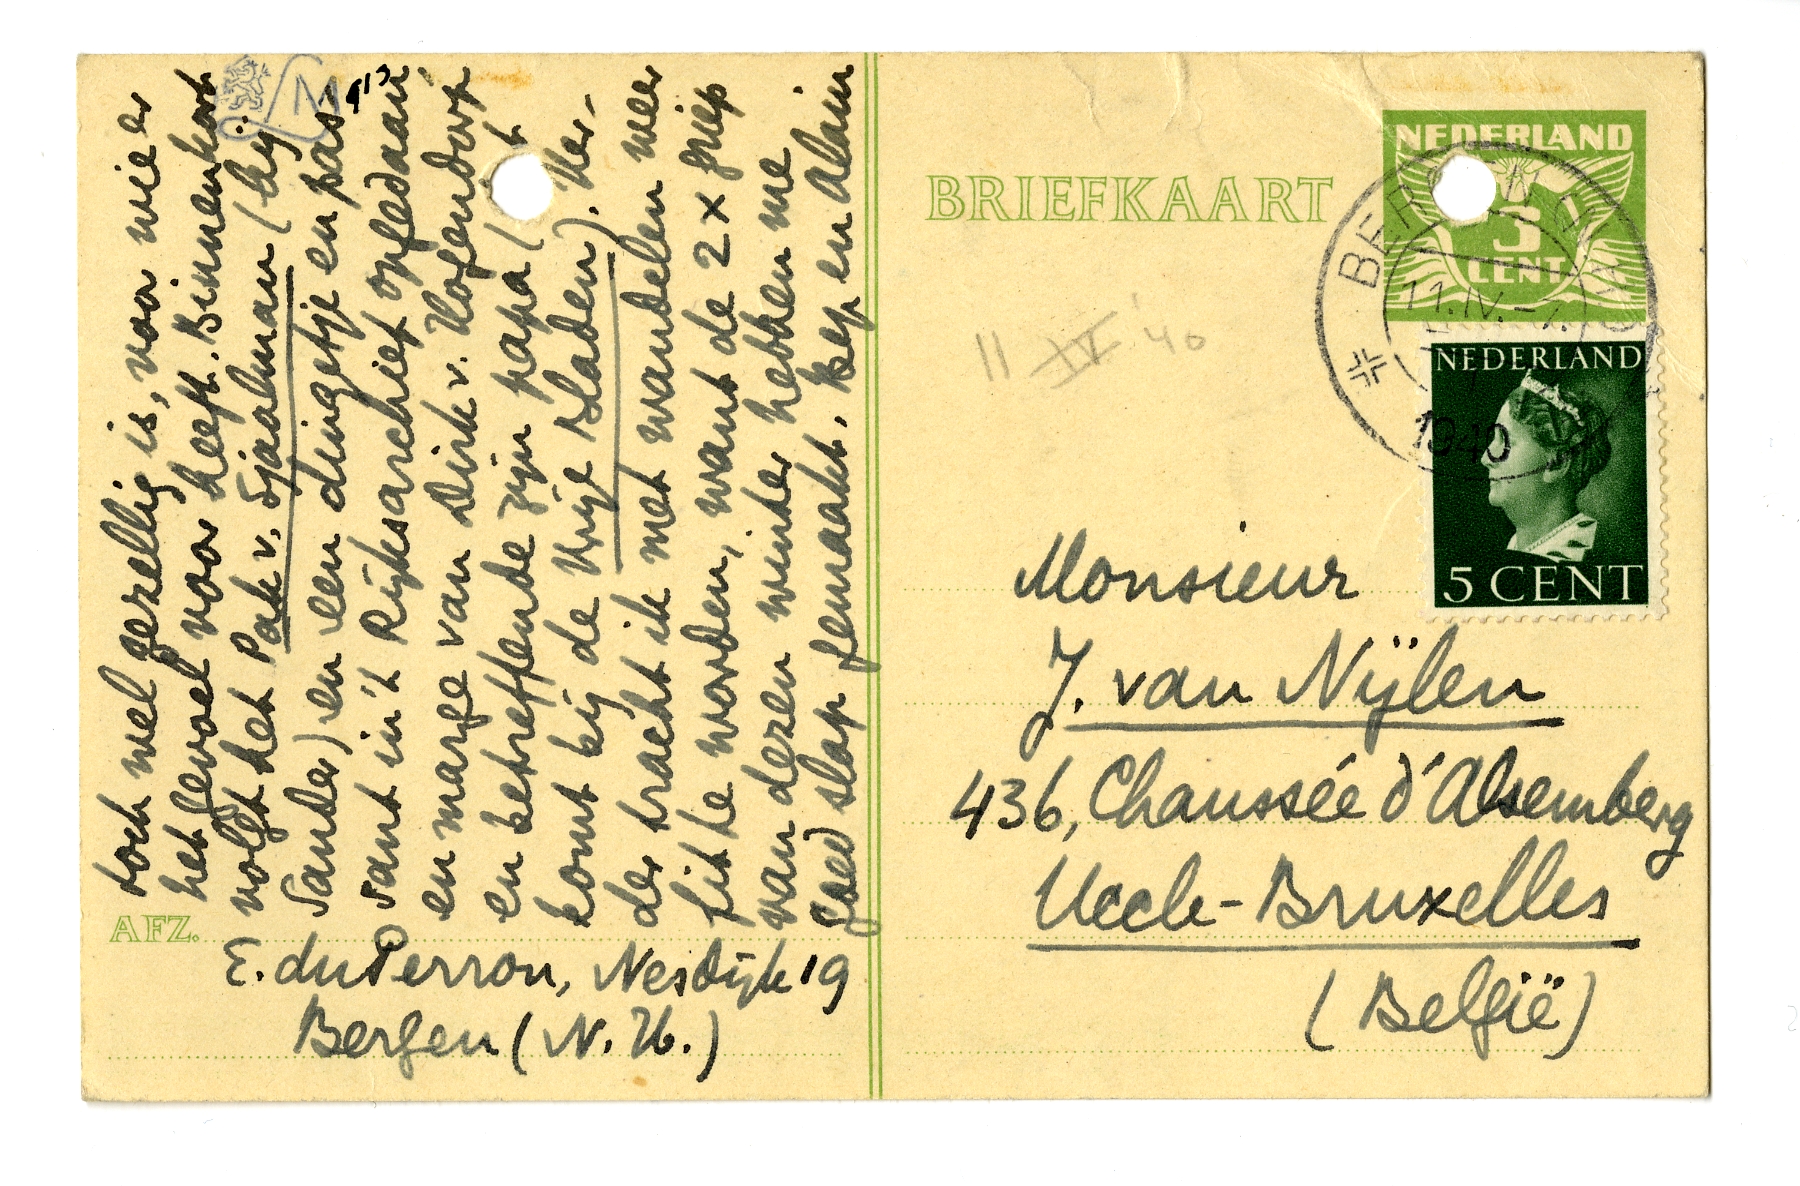 toch wel gezellig is, voor wie er
het gevoel voor heeft. Binnenkort
volgt het Pak v. Sjaalman (bij
Sander) en een dingetje en pas-
sant in 't Rijksarchief opgedaan
en marge van Dirk v. Hogendorp
en betreffende zijn papa (
komt bij de Vrije Bladen). Ver-
der tracht ik met wandelen weer
fit te worden, want de 2 x griep
van dezen winter hebben me
goed slap gemaakt. Bep en Alain
AFZ.
E. du Perron, Nesdijk 19
Bergen (N. H.)
M 513
BRIEFKAART
NEDERLAND
5
CENT
11.IV.
1940
NEDERLAND
5 CENT
11 IV '40
Monsieur
J. van Nijlen
436, Chaussée d'Alsemberg
Uccle-Bruxelles
(België)